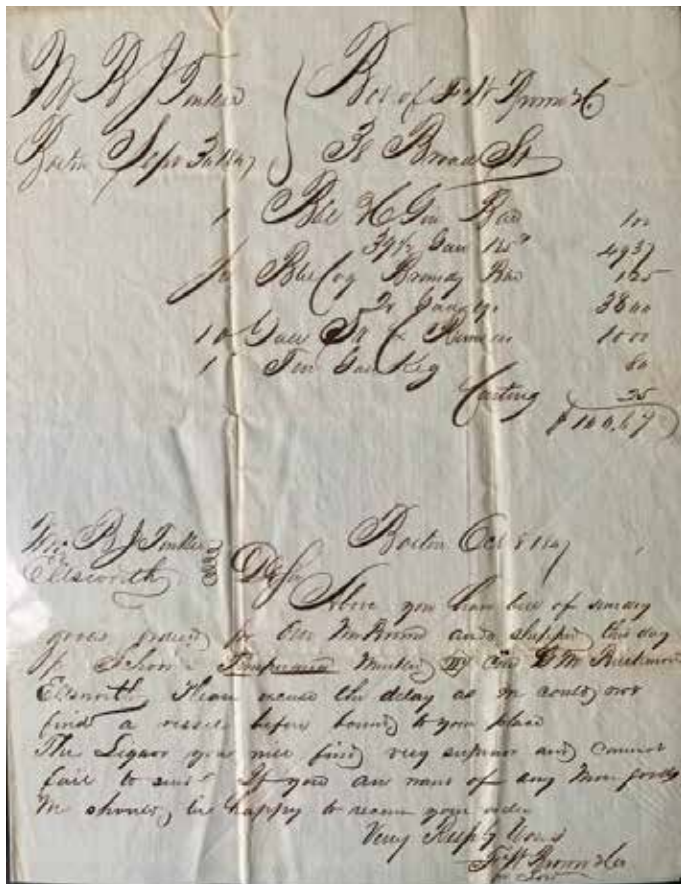 Mr B J Tinker Bot of F W Brown & Co
Boston Sept 30 1847 38 Broad St
1 Bbl H Gin 100
39½ Gall 125 4937
Bbl Cog Brandy 125
3800
10 Galls 1000
1 Ten Gall Keg 80
Carting 25
$
Boston Oct 8 1847
Mr B J Tinker
Ellsworth D Sir
Above you have bill of sunday
goods ordered by Our Mr Brown and shipped this day
pr Schoor Temperance
Ellsworth Please excuse the delay as we could not
find a vessel before bound to your place
The Liquor you will find very superior and cannot
fail to suit If you are want of any more goods
We should be happy to receive your order
Very Respy Yours
F W Brown & Co